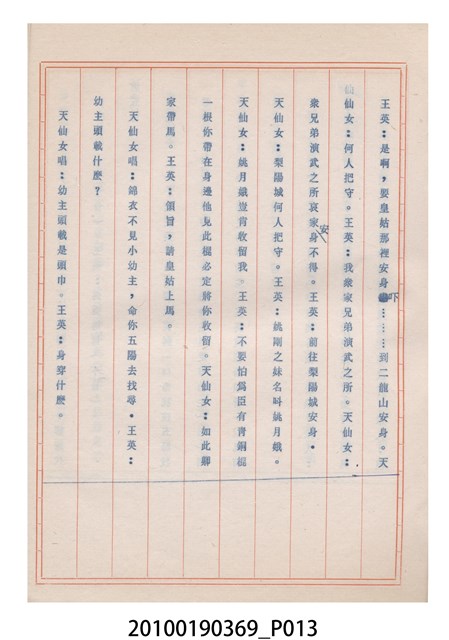 王英：是啊，要皇姑那裡安身下………到二龍山安身。天
仙女：何人把守。王英：我衆家兄弟演武之所。天仙女：
衆兄弟演武之所哀家安身不得。王英：前往梨陽城安身。
天仙女：梨陽城何人把守。王英：姚剛之妹名叫姚月娥。
天仙女：姚月娥豈肯收留我。王英：不要怕爲臣有青銅棍
一根你帶在身邊他見此棍必定將你收留。天仙女：如此卿
家帶馬。王英：領旨，請皇姑上馬。
天仙女唱：錦衣不見小幼主，命你五陽去找尋。王英：
幼主頭戴什麼？
天仙女唱：幼主頭戴是頭巾。王英：身穿什麽。
20100190369_P013